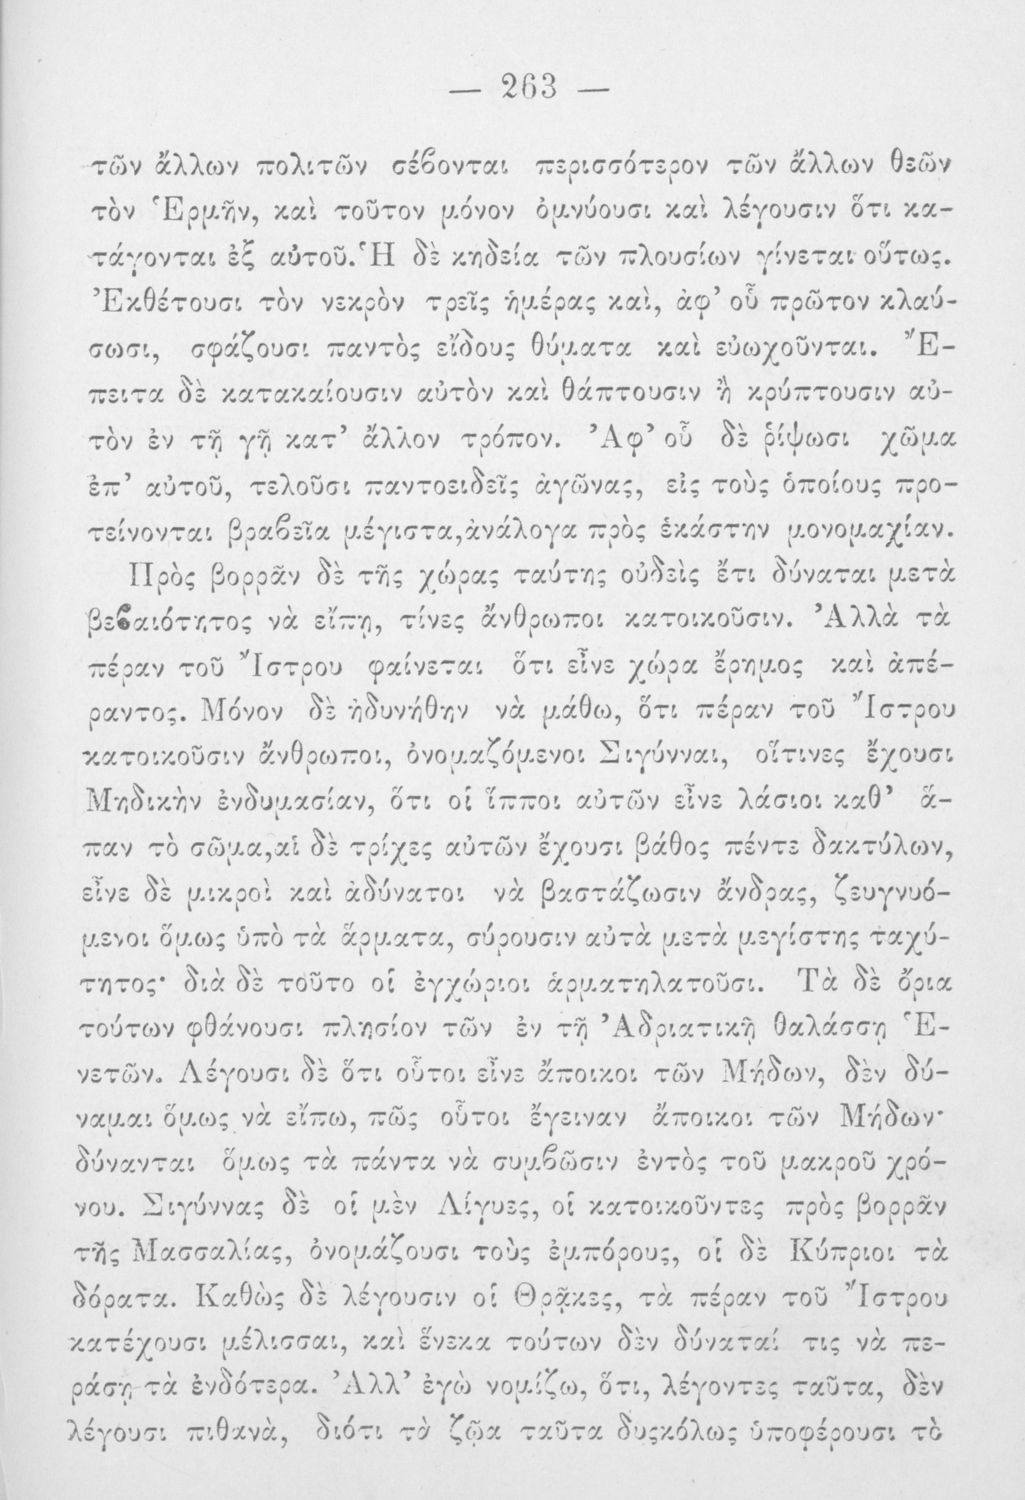 — 263 —
τῶν ἄλλων πολιτῶν σέβονται περισσότερον τῶν ἄλλων θεῶν
τὸν Ἑρμῆν, καὶ τοῦτον μόνον ὀμνύουσι καὶ λέγουσιν ὅτι κα-
τάγονται ἐξ αὐτοῦ. Ἡ δὲ κηδεία τῶν πλουσίων γίνεται οὕτως.
Ἐκθέτουσι τὸν νεκρὸν τρεῖς ἡμέρας καὶ, ἀφ’ οὗ πρῶτον κλαύ-
σωσι, σφάζουσι παντὸς εἴδους θύματα καὶ εὐωχοῦνται. Ἔ-
πειτα δὲ κατακαίουσιν αὐτὸν καὶ θάπτουσιν ἢ κρύπτουσιν αὐ-
τὸν ἐν τῇ γῇ κατ’ ἄλλον τρόπον. Ἀφ’ οὗ δὲ ῥίψωσι χῶμα
ἐπ’ αὐτοῦ, τελοῦσι παντοειδεῖς ἀγῶνας, εἰς τοὺς ὁποίους προ-
τείνονται βραβεῖα μέγιστα, ἀνάλογα πρὸς ἑκάστην μονομαχίαν.
Πρὸς βορρᾶν δὲ τῆς χώρας ταύτης οὐδεὶς ἔτι δύναται μετὰ
βεβαιότητος νὰ εἴπῃ, τίνες ἄνθρωποι κατοικοῦσιν. Ἀλλὰ τὰ
πέραν τοῦ Ἴστρου φαίνεται ὅτι εἶνε χώρα ἔρημος καὶ ἀπέ-
ραντος. Μόνον δὲ ἠδυνήθην νὰ μάθω, ὅτι πέραν τοῦ Ἴστρου
κατοικοῦσιν ἄνθρωποι, ὀνομαζόμενοι Σιγύνναι, οἵτινες ἔχουσι
Μηδικὴν ἐνδυμασίαν, ὅτι οἱ ἵπποι αὐτῶν εἶνε λάσιοι καθ’ ἅ-
παν τὸ σῶμα, αἱ δὲ τρίχες αὐτῶν ἔχουσι βάθος πέντε δακτύλων,
εἶνε δὲ μικροὶ καὶ ἀδύνατοι νὰ βαστάζωσιν ἄνδρας, ζευγνυό-
μενοι ὅμως ὑπὸ τὰ ἅρματα, σύρουσιν αὐτὰ μετὰ μεγίστης ταχύ-
τητος· διὰ δὲ τοῦτο οἱ ἐγχώριοι ἁρματηλατοῦσι. Τὰ δὲ ὅρια
τούτων φθάνουσι πλησίον τῶν ἐν τῇ Ἀδριατικῇ θαλάσσῃ Ἑ-
νετῶν. Λέγουσι δὲ ὅτι οὗτοι εἶνε ἄποικοι τῶν Μήδων, δὲν δύ-
ναμαι ὅμως νὰ εἴπω, πῶς οὗτοι ἔγειναν ἄποικοι τῶν Μήδων·
δύνανται ὅμως τὰ πάντα νὰ συμβῶσιν ἐντὸς τοῦ μακροῦ χρό-
νου. Σιγύννας δὲ οἱ μὲν Λίγυες, οἱ κατοικοῦντες πρὸς βορρᾶν
τῆς Μασσαλίας, ὀνομάζουσι τοὺς ἐμπόρους, οἱ δὲ Κύπριοι τὰ
δόρατα. Καθὼς δὲ λέγουσιν οἱ Θρᾷκες, τὰ πέραν τοῦ Ἴστρου
κατέχουσι μέλισσαι, καὶ ἕνεκα τούτων δὲν δύναταί τις νὰ πε-
ράσῃ τὰ ἐνδότερα. Ἀλλ’ ἐγὼ νομίζω, ὅτι, λέγοντες ταῦτα, δὲν
λέγουσι πιθανὰ, διότι τὰ ζῷα ταῦτα δυςκόλως ὑποφέρουσι τὸ